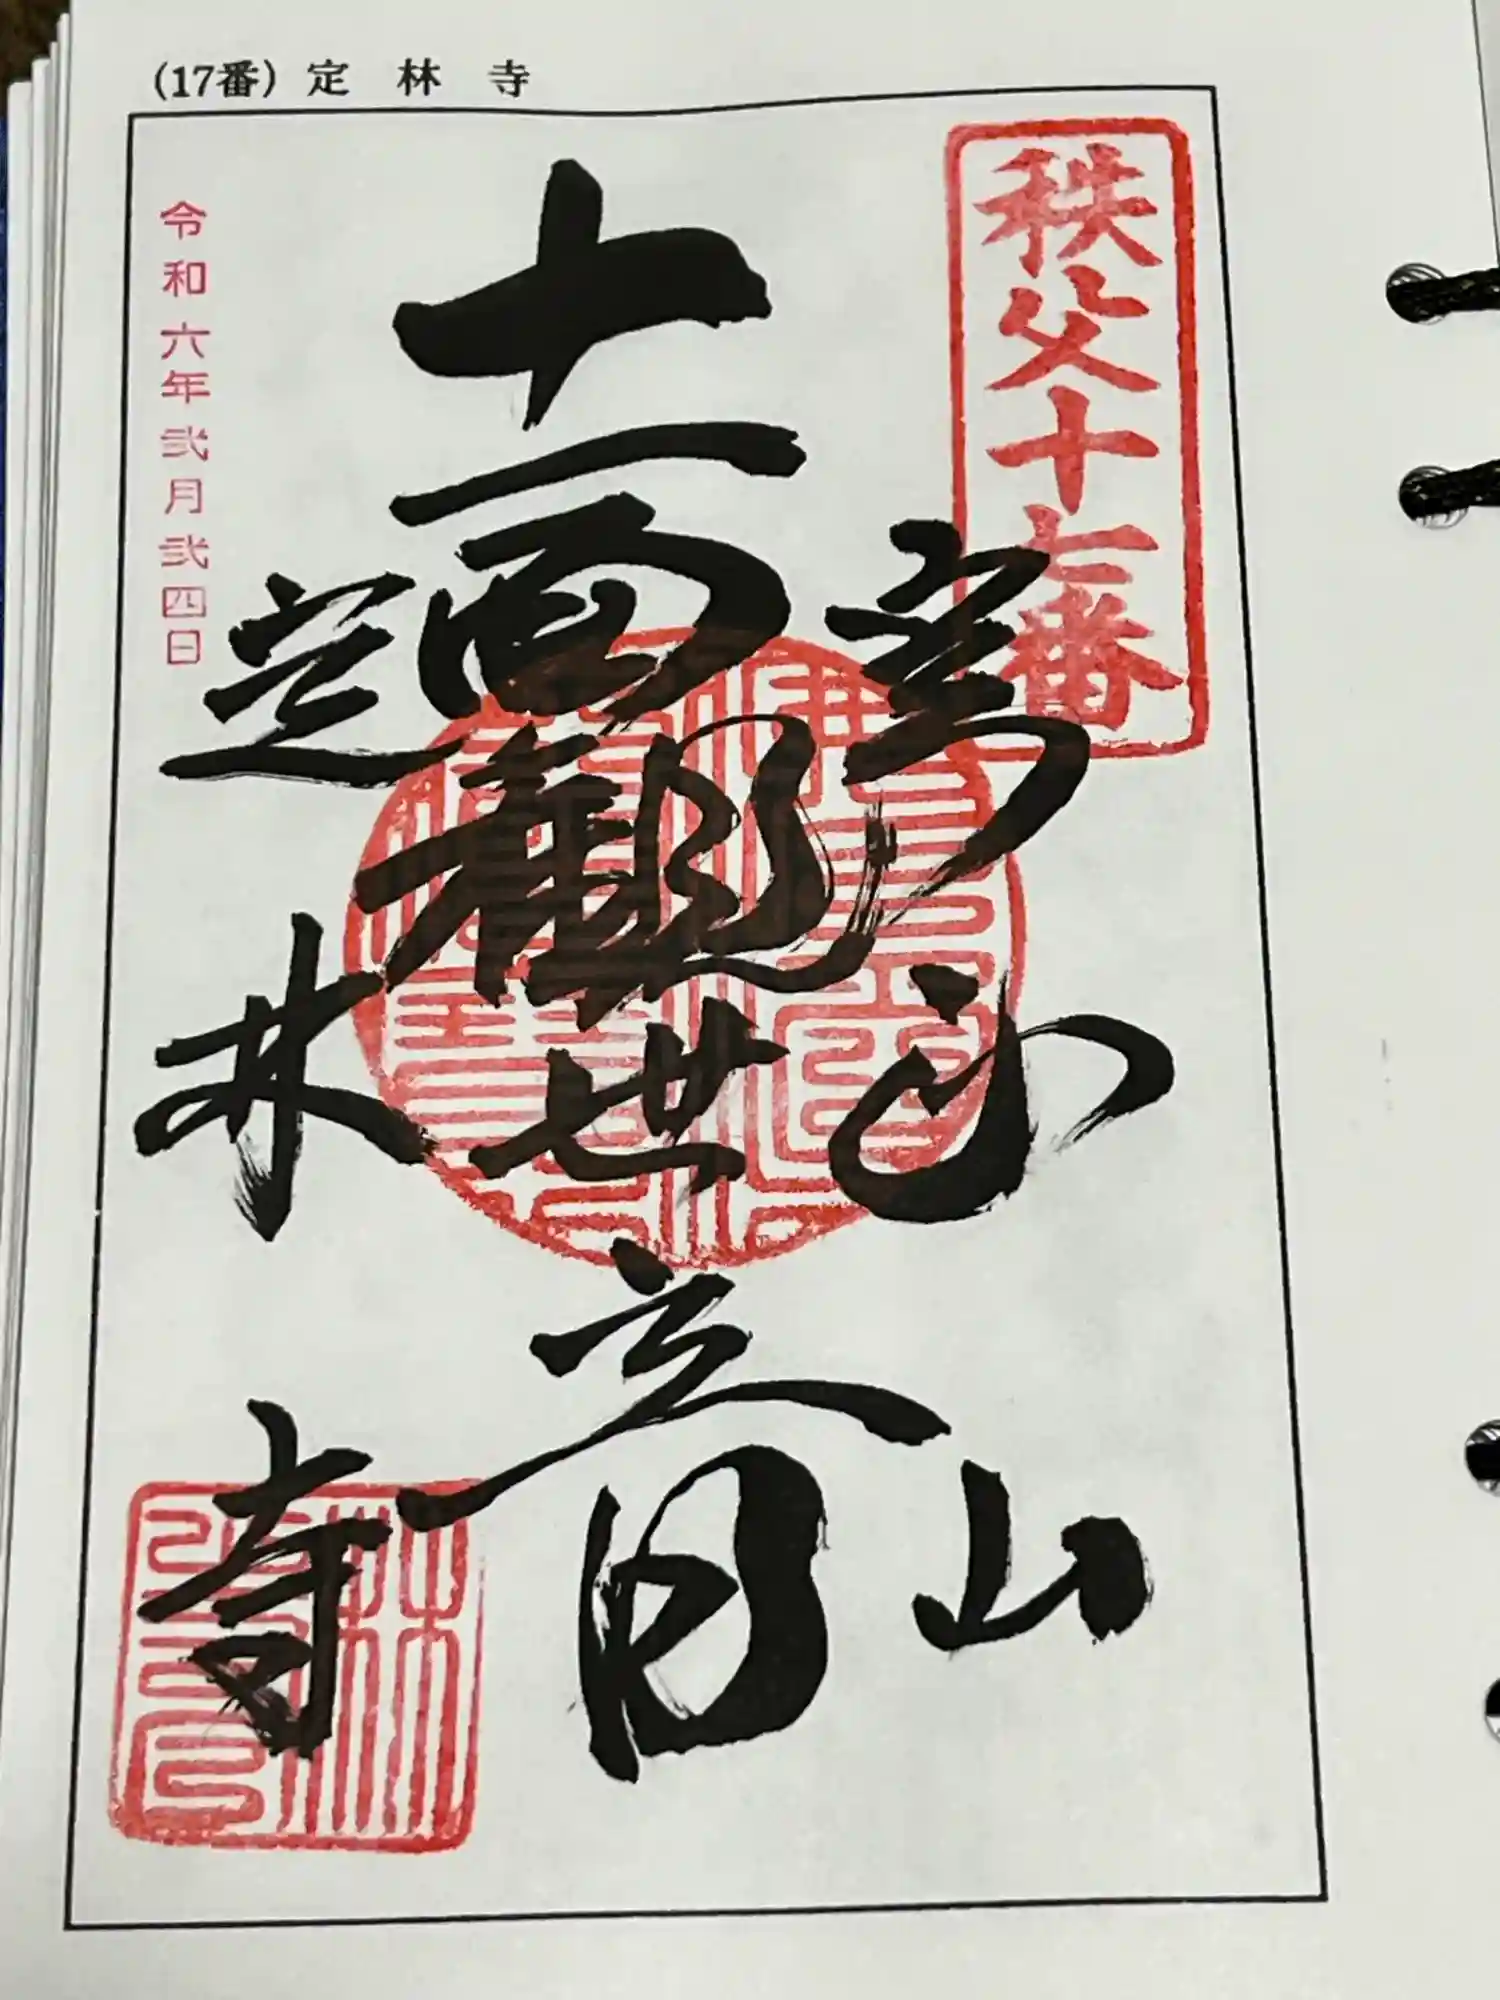 (17番) 定林寺
秩父十七番
實正山
十一面観世音
定林寺
令和六年弐月弐四日